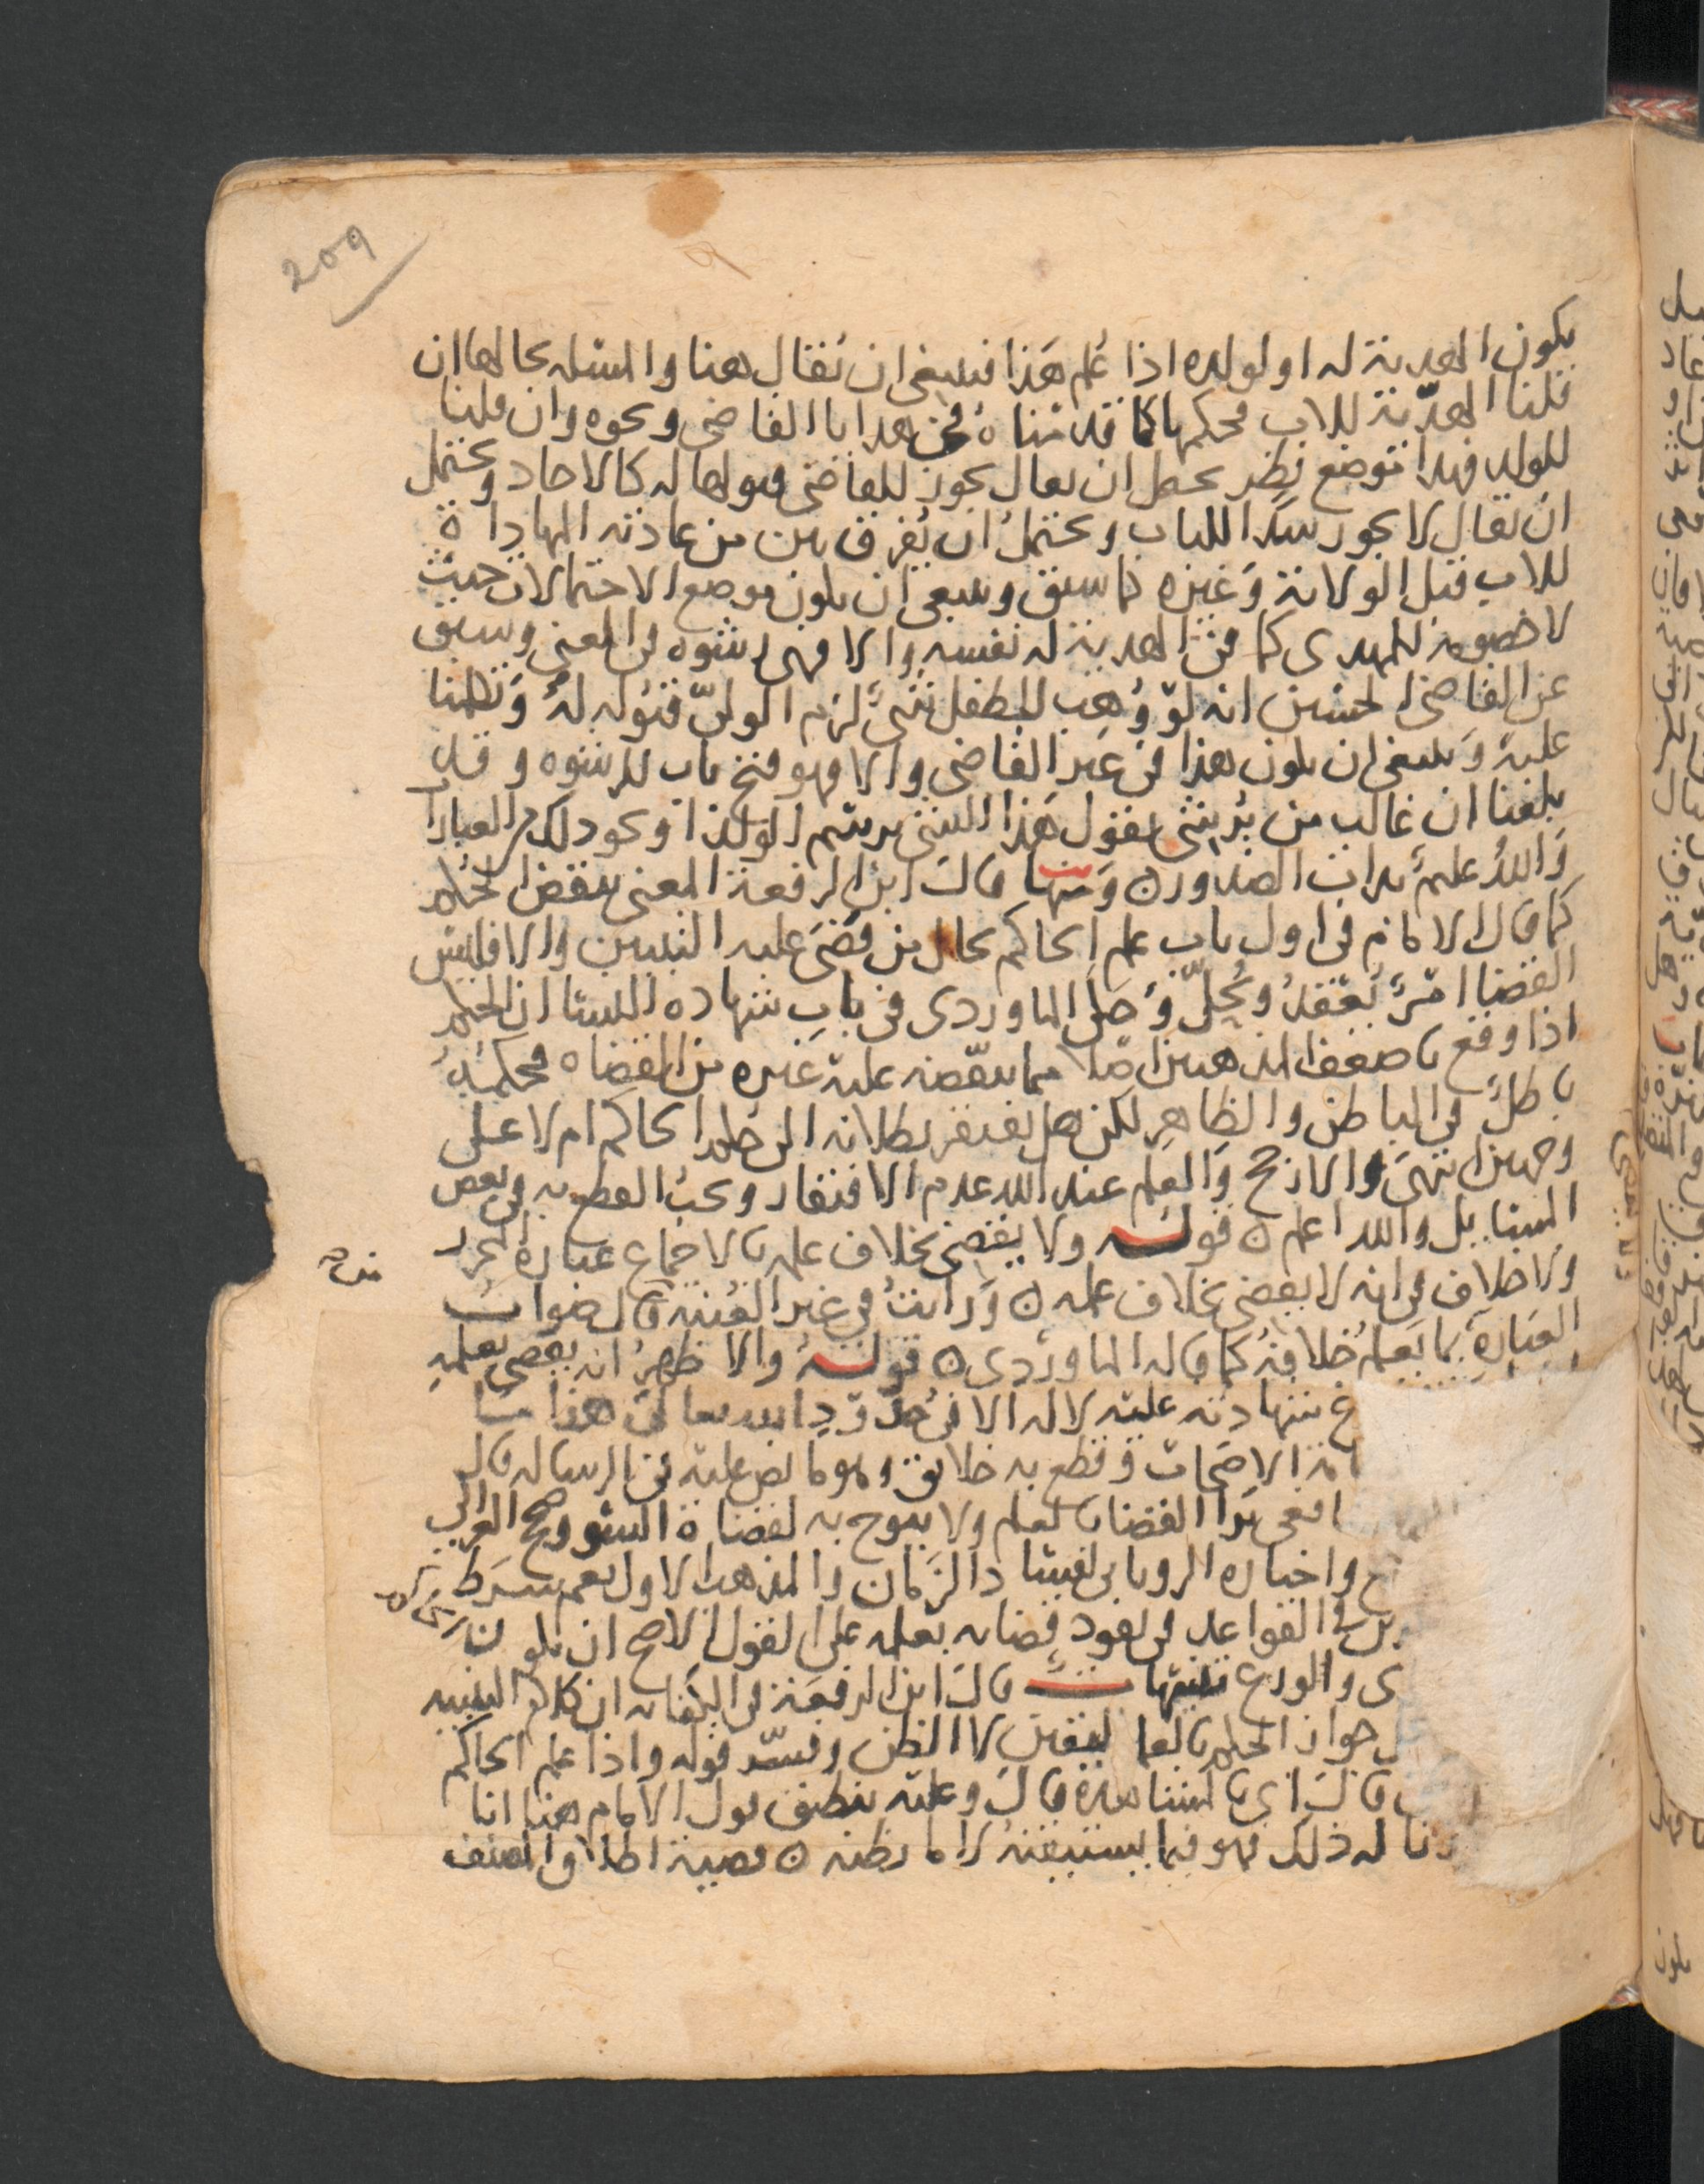 209
يكون الهدية له او لولده اذا علم هذا فينبغي ان يقال هنا والمسله بحالها ان
قلنا الهدية للاب فحكمها كما قدمناه في هدايا القاضي ونحوه وان قلنا
للولد فهذا موضع نظر يحتمل ان يقال يجوز للقاضي قبولها له كالاحاد ويحتمل
ان يقال لا يجوز سدا للباب ويحتمل ان يفرق بين من عادته المهاداة
للاب قبل الولاية وغيره كما سبق وينبغي ان يكون موضع الاحتمالات حيث
لا خصومة للمهدى كما في الهدية له نفسه والا فهي رشوه في المعنى وسبق
عن القاضي الحسين انه لو وهب للطفل شئ لزم الولي قبوله له وتكلمنا
عليه وينبغي ان يكون هذا في غير القاضي والا فهو فتح باب للرشوه وقد
بلغنا ان غالب من يرتشي يقول هذا الشئ برسم الولد او نحو ذلك من العبارا
والله عليم بذات الصدور ومنها قال ابن الرفعة المعنى بنقض الحكم
كما قال الامام في اول باب علم الحاكم بحال من قضى عليه التبيين والا فليس
القضا امر يعقد ويحل وحكى الماوردي في باب شهادة النسا ان الحكم
اذا وقع باضعف المذهبين اصلا مما ينقضه عليه غيره من القضاه فحكمه
باطل في الباطن والظاهر لكن هل يفتقر بطلانه الى حكم الحاكم ام لا على
وجهين انتهى والارجح والعلم عند الله عدم الافتقار ويجب القطع به في بعض
المسايل والله اعلم قوله ولا يقضي بخلاف علمه بالاجماع عبارة المحرر
ولا خلاف في انه لا يقضي بخلاف علمه ورايت في غير الغنية قال صواب
العبارة بما يعلم خلافه كما قاله الماوردي قوله والاظهر انه يقضي بعلمه
شهادته عليه لاله الا في حدود الله تعالى هذا ما
الاصحاب وقطع به خلايق وهو ما نص عليه في الرساله قال
القضا بالعلم ولا يبوح به لقضاة السو وصحح الغزالي
واختاره الروياني لفسا د الزمان والمذهب الاول نعم شرط
في القواعد في نفود قضايه بعلمه على القول الاصح ان يكون
والورع تنبيهات قال ابن الرفعة في الكفايه ان كلام التنبيه
جواز الحكم بالعلم اليقين لا الظن وفسر قوله واذا علم الحاكم
قال اي بالمشاهدة قال وعليه ينطبق قول الامام هنا انا
له ذلك فهو فيما يستيقنه لا ما يظنه قضية اطلاق المصنف